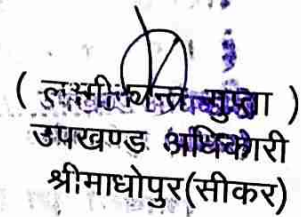 ( लक्ष्मी कान्त गुप्ता )
उपखण्ड अधिकारी
श्रीमाधोपुर(सीकर)